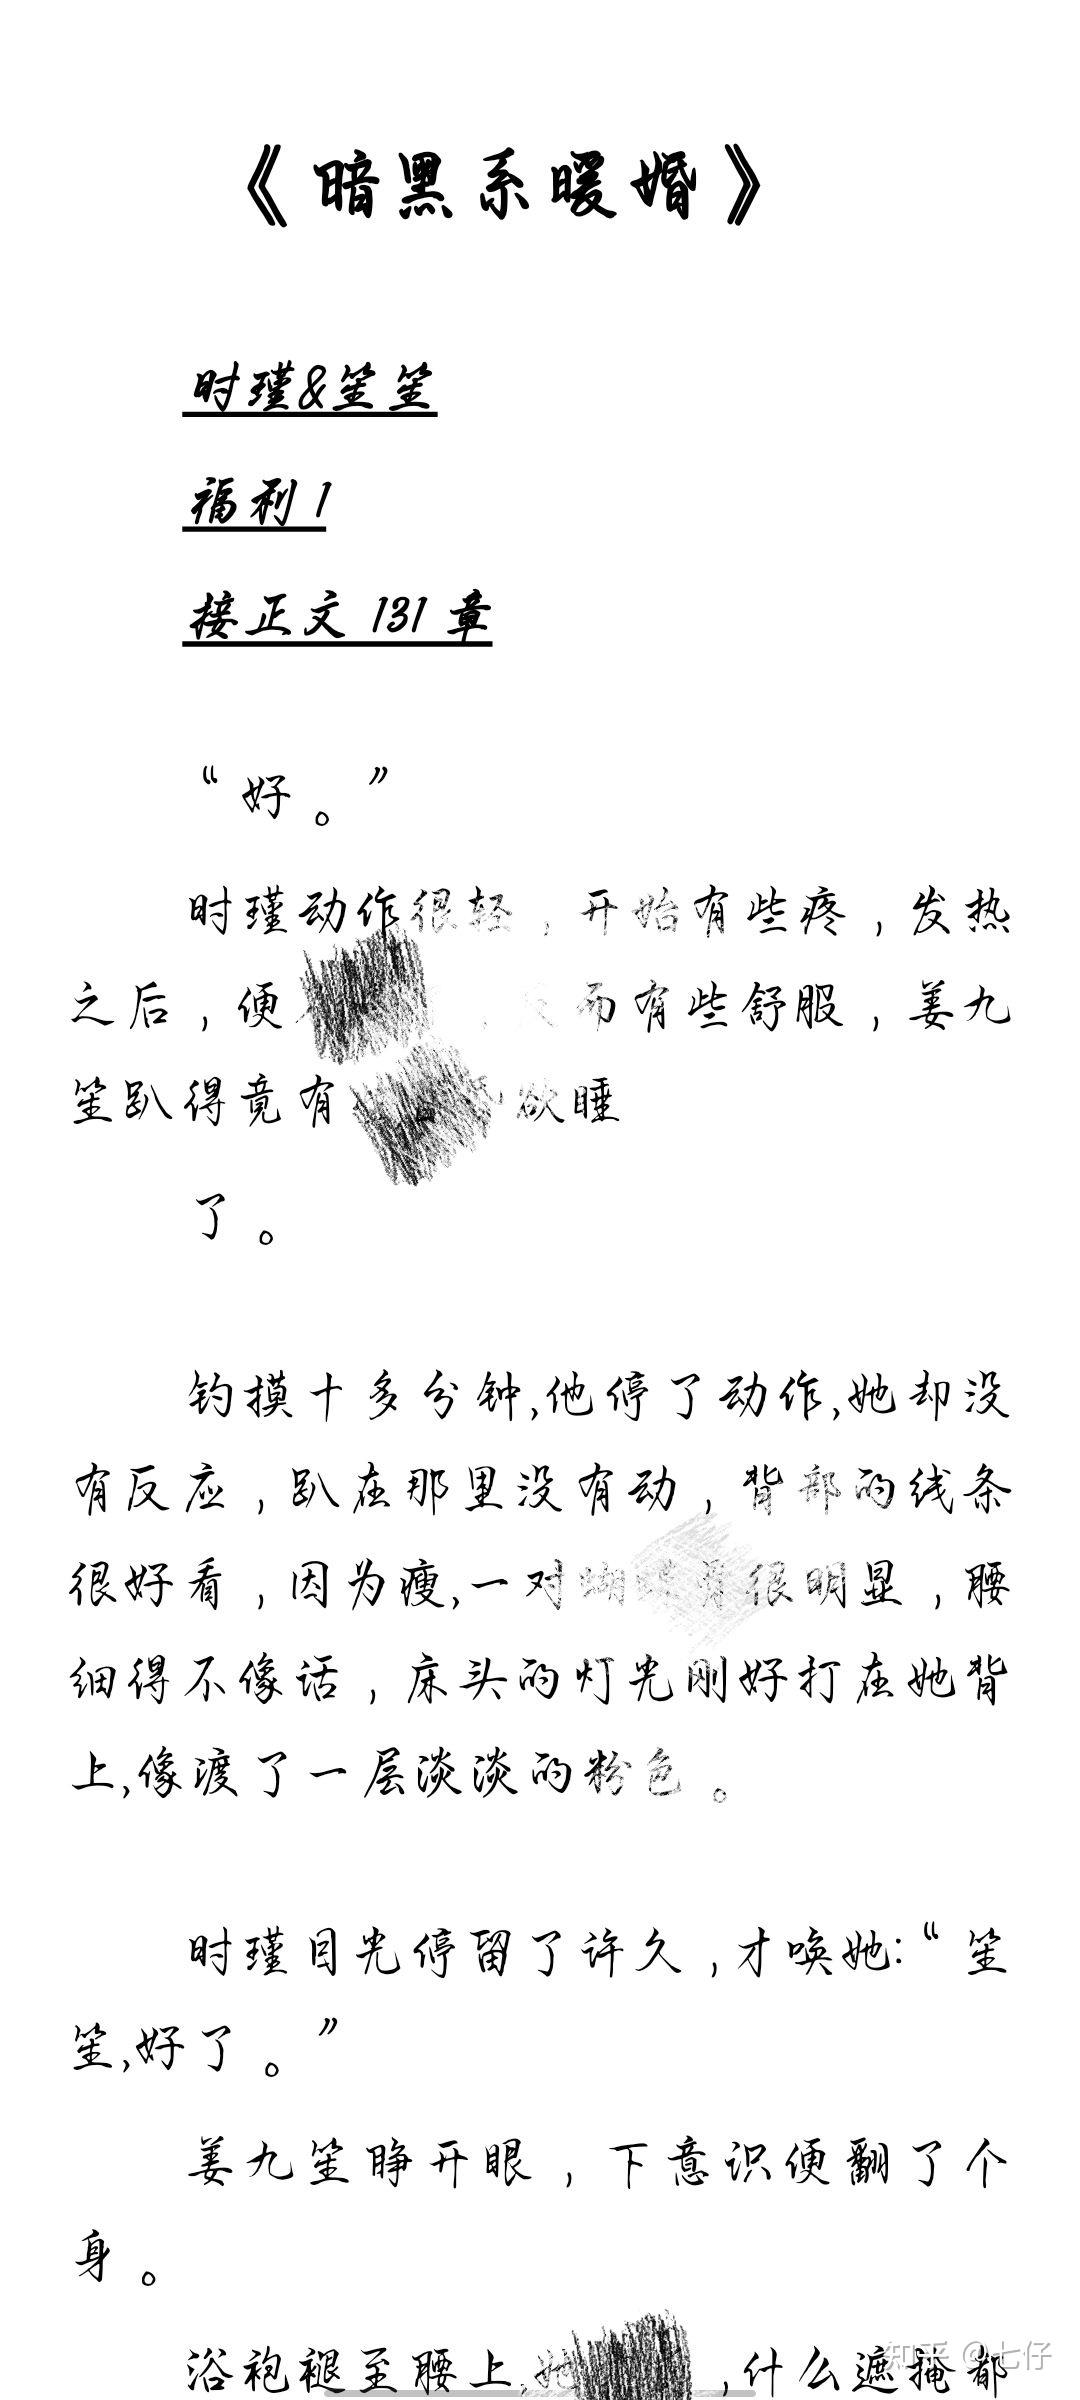 《暗黑系暖婚》
时瑾&笙笙
福利1
接正文 131 章
“好。”
时瑾动作很轻，开始有些疼，发热
之后，便，而有些舒服，姜九
笙趴得竟有欲睡
了。
钓摸十多分钟,他停了动作,她却没
有反应，趴在那里没有动，背部的线条
很好看，因为瘦,一对蝴蝶骨很明显，腰
细得不像话，床头的灯光刚好打在她背
上,像渡了一层淡淡的粉色。
时瑾目光停留了许久，才唤她:“笙
笙,好了。”
姜九笙睁开眼，下意识便翻了个
身。
浴袍褪至腰上,她，什么遮掩都
知乎 @七仔